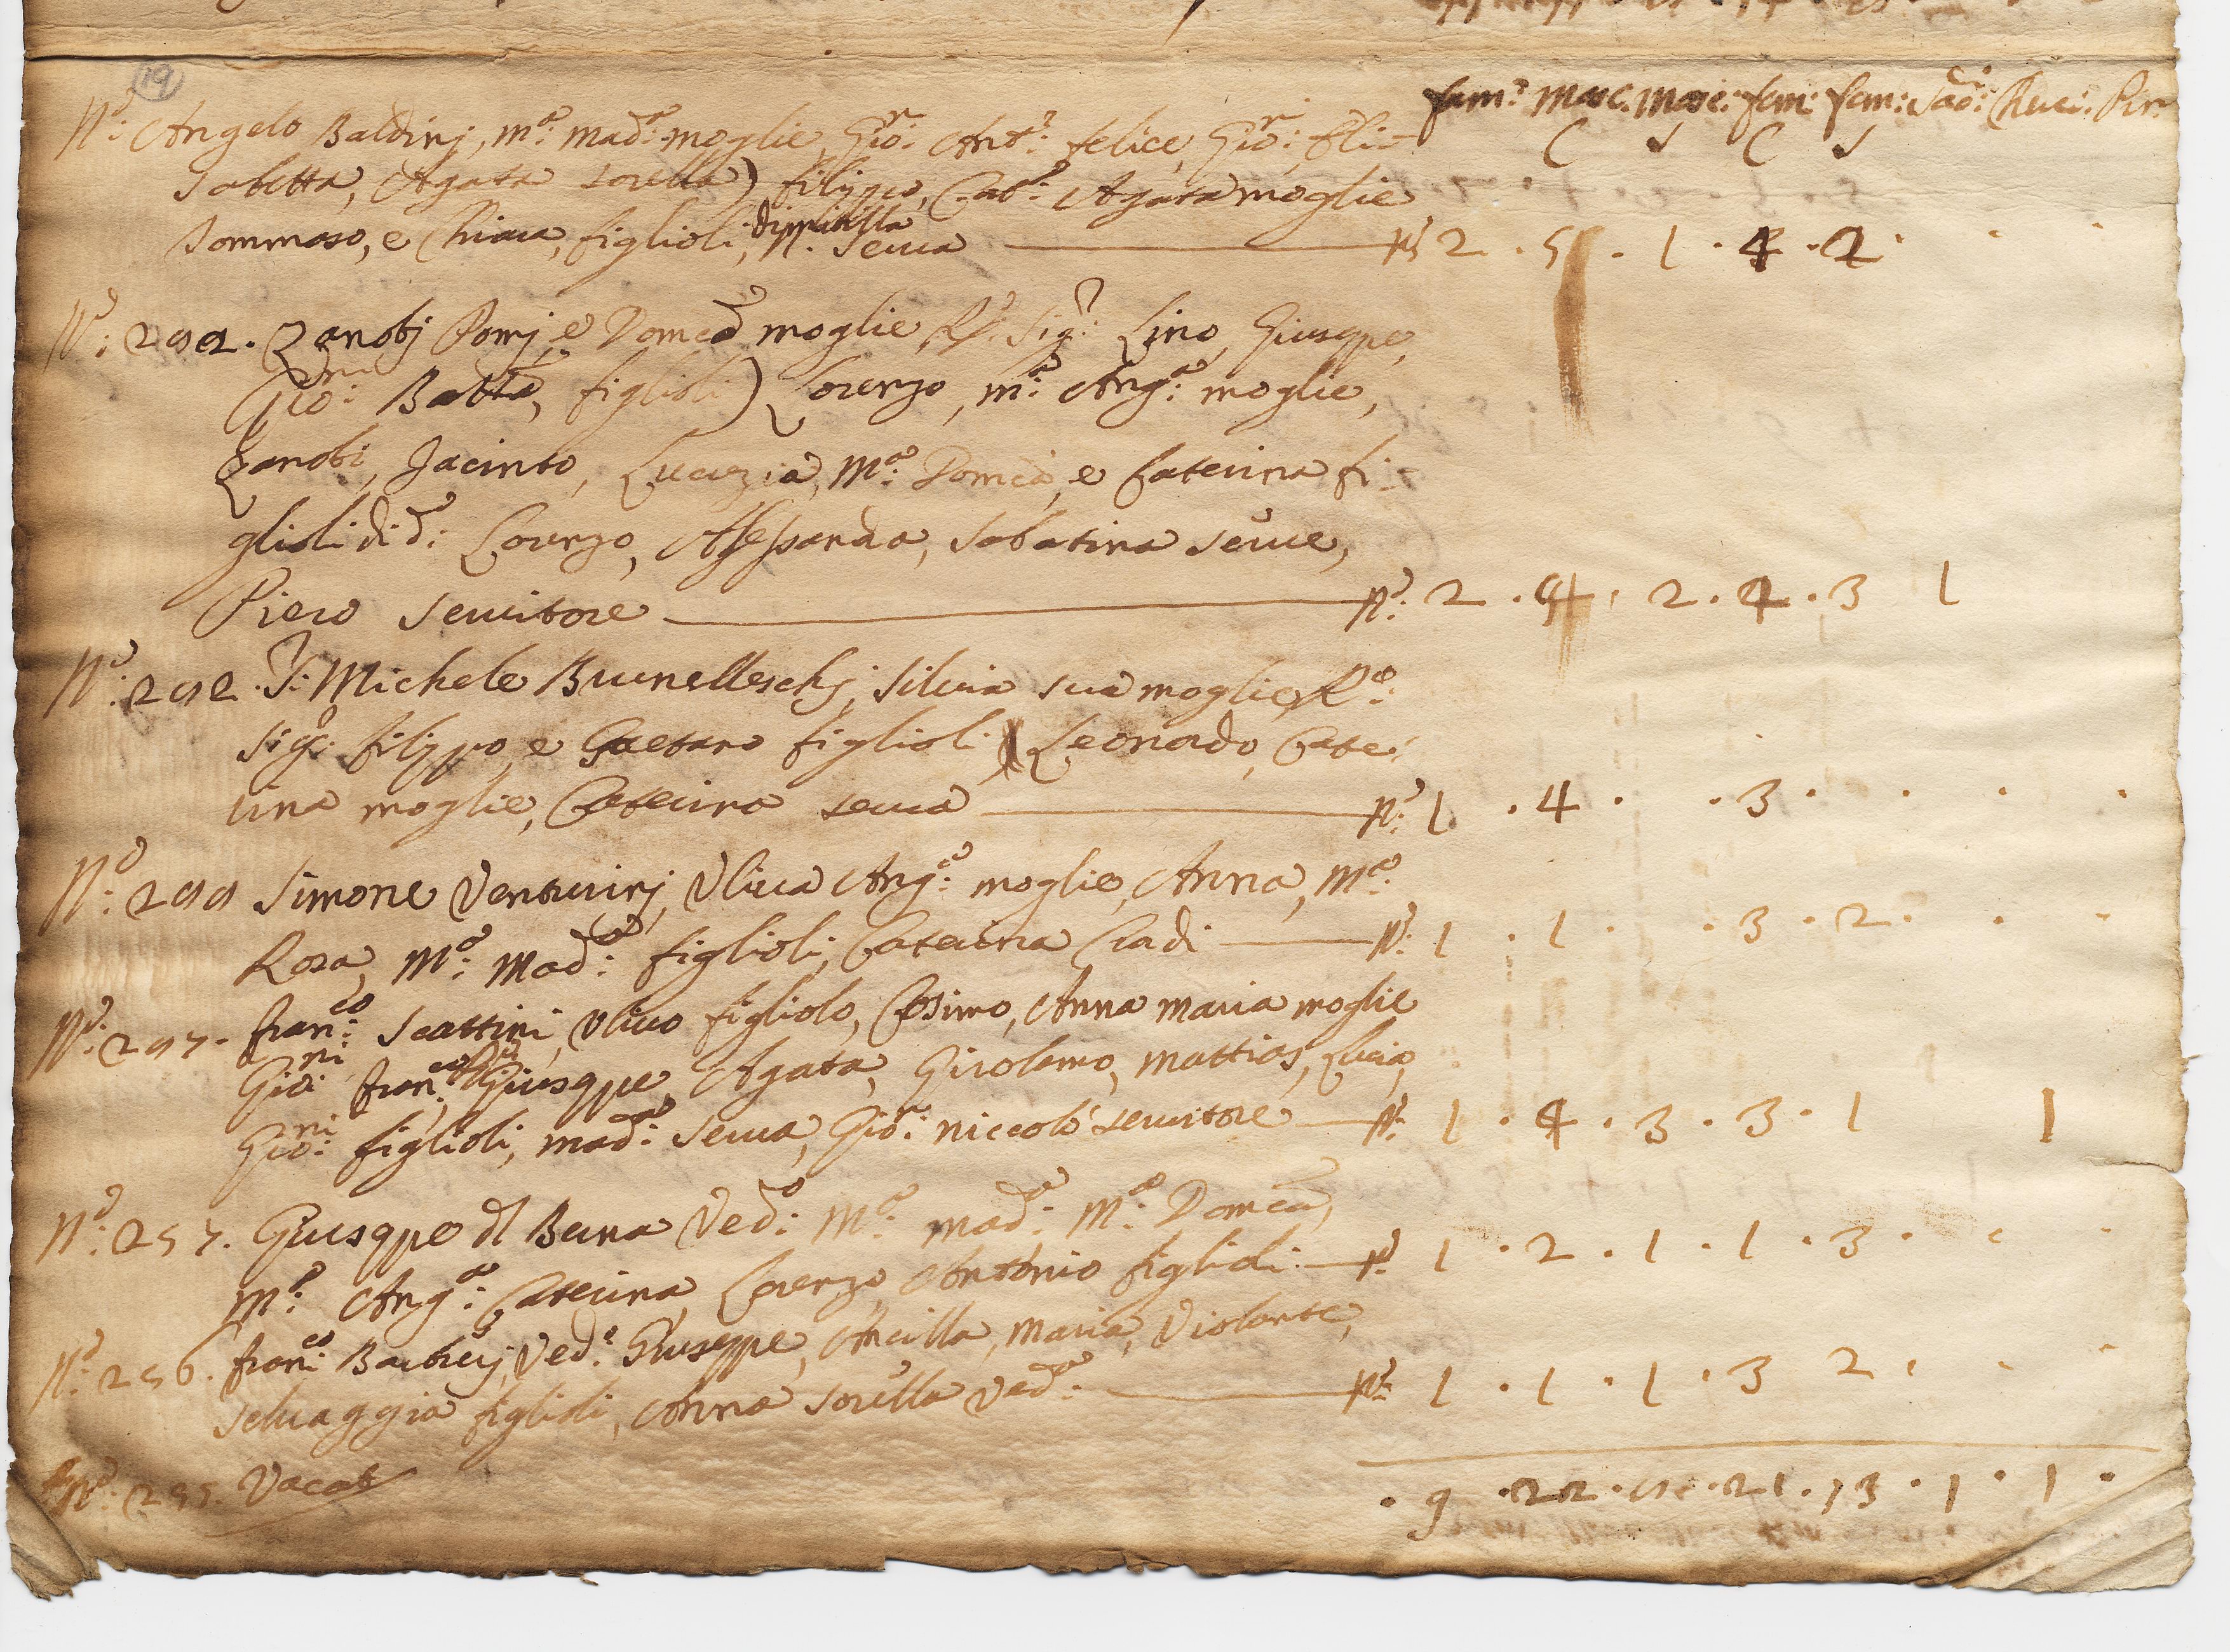 19
fam: Masc. Masc: fem: fem: Sac: Cher: Pin:
C S C S
N°: Angelo Baldinj, Mª: Madª: moglie, Gioⁿ: Antº: felice, Gioⁿ: Eli=
sabetta, Agata sorella) filippo, Catª: Agata moglie
Tommaso, e Chiara, figlioli, serva N° 2 . 5 . 1 . 4 . 2 . . .
N°: 292. Zanobj Pomj, e Domcª moglie, Rᵈ: Sigʳ: Lino, Giuseppe,
Gioⁿⁱ: Battª, figlioli) Lorenzo, Mª: Angª: moglie,
Zanobi, Jacinto, Lucrezia, Mª: Domcª, e Caterina fi=
glioli di dº: Lorenzo, Alessandra, Sabatina serve,
Piero servitore N°: 2 . 4 . 2 . 4 . 3 1
N°: 292. S: Michele Brunelleschj, Silvia sua moglie, Rº:
Sigʳ: filippo, e Gaetano figlioli) Leonardo, Cate:
rina moglie, Caterina serva N°: 1 . 4 . . 3 . . . .
N°: 299 Simone Venturinj, Uliva Angª: moglie, Anna, Mª:
Rosa, Mª: Madª: figlioli, Caterina N°: 1 . 1 . . 3 . 2 . . .
N°: 297. franᶜᵒ: Scattini, Ulivo figliolo, Cosimo, Anna Maria moglie
Gioⁿⁱ: franᶜᵒ: Giuseppe, Agata, Girolamo, Mattias, Lucia,
Gioⁿⁱ: figlioli, Madª: serva, Gioⁿ: Niccolò servitore N°: 1 . 4 . 3 . 3 . 1 1
N°: 257. Giuseppe dl Buna Vedº: Mª: Madª: Mª: Domcª,
Mª: Angª: Caterina, Lorenzo, Antonio figlioli: N° 1 . 2 . 1 . 1 . 3 . . .
N°: 256. franᶜᵒ: Barbierj, Vedº: Giuseppe, Ancilla, Maria, Violante,
Selvaggia figlioli, Anna sorella Vedª: N°: 1 . 1 . 1 . 3 2 . . .
N°: 255. Vacat
. 9 . 22 . . 21 . 13 . 1 . 1 .